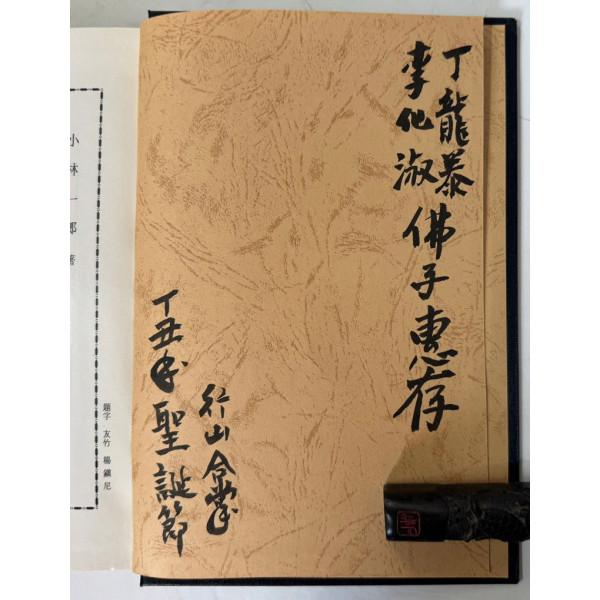 丁龍
李化淑
佛子惠存
行山合掌
丁丑年聖誕節
小林一郎 著
題字 友竹 楊鎭尼